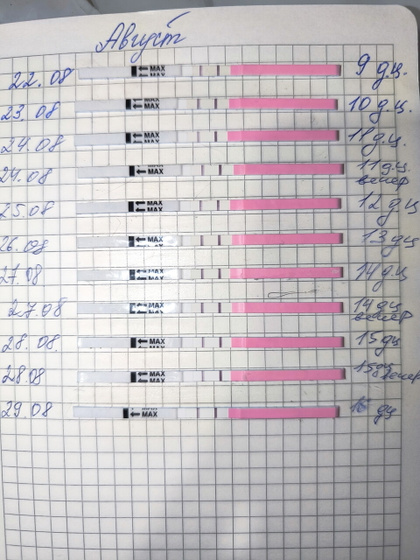 Август
22.08 MAX MAX 9 д.ц.
23.08 MAX MAX 10 д.ц.
24.08 MAX MAX 11 д.ц.
24.08 MAX 11 д.ц. вечер
25.08 MAX 12 дц
26.08 MAX 13 дц
27.08 MAX 14 дц
27.08 MAX 14 дц вечер
28.08 MAX 15 дц
28.08 MAX MAX 15 дц вечер
29.08 MAX 16 дц